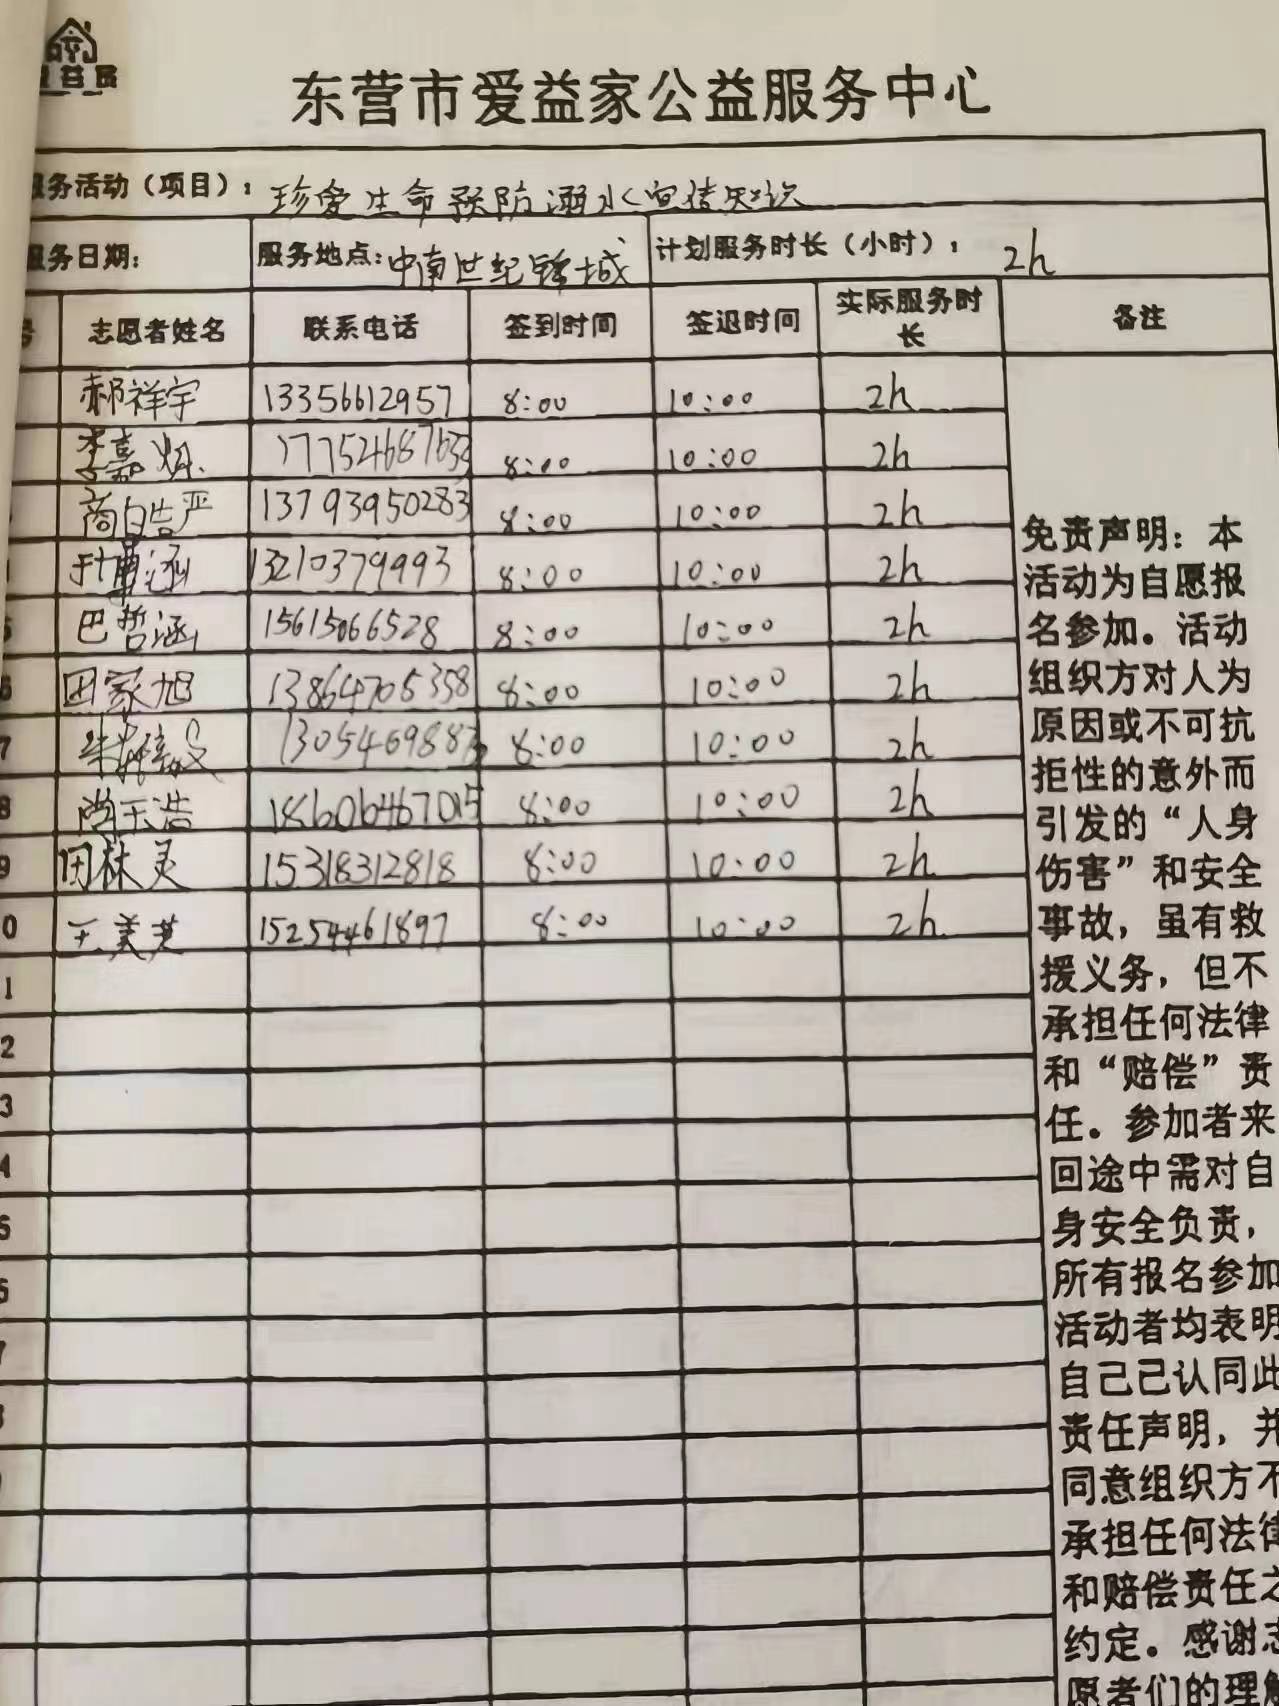 东营市爱益家公益服务中心
服务活动（项目）：珍爱生命预防溺水宣传知识
服务日期： 服务地点：中南世纪锦城 计划服务时长（小时）： 2h
号 志愿者姓名 联系电话 签到时间 签退时间 实际服务时长 备注
郝祥宇 13356612957 8:00 10:00 2h
李嘉 8:00 10:00 2h
13793950283 8:00 10:00 2h
涵 13210379993 8:00 10:00 2h
巴哲涵 15615066528 8:00 10:00 2h
田家旭 13864705358 8:00 10:00 2h
7 8:00 10:00 2h
8 尚玉浩 18606467015 8:00 10:00 2h
9 田林灵 15318312818 8:00 10:00 2h
0 王美芝 15254461897 8:00 10:00 2h
1
2
3
4
5
6
7
免责声明：本
活动为自愿报
名参加。活动
组织方对人为
原因或不可抗
拒性的意外而
引发的“人身
伤害”和安全
事故，虽有救
援义务，但不
承担任何法律
和“赔偿”责
任。参加者来
回途中需对自
身安全负责，
所有报名参加
活动者均表明
自己已认同此
责任声明，并
同意组织方不
承担任何法律
和赔偿责任之
约定。感谢志
愿者们的理解